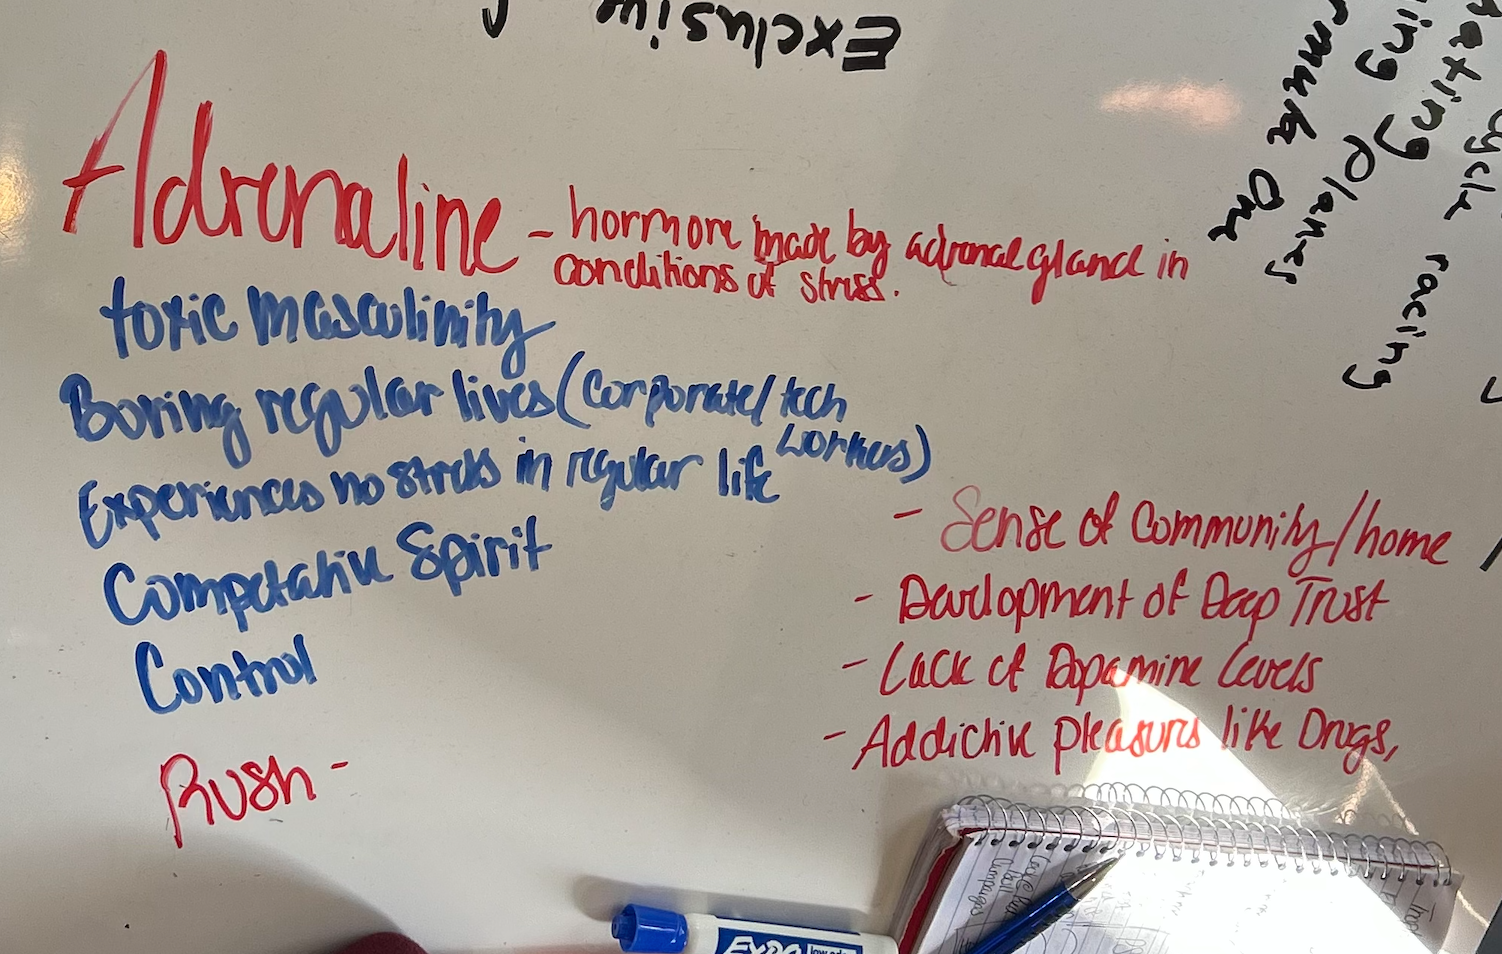 Exclusive
Adrenaline - hormore made by adrenal gland in
conditions of stress.
toxic masculinity
Boring regular lives (Corporate/tech
workers)
Experiences no stress in regular life
Competative Spirit
Control
Rush -
- Sense of Community/home
- Development of Deep Trust
- Lack of Dopamine levels
- Addictive pleasures like Drugs,
One
Planes
racing
EXPO
low odor